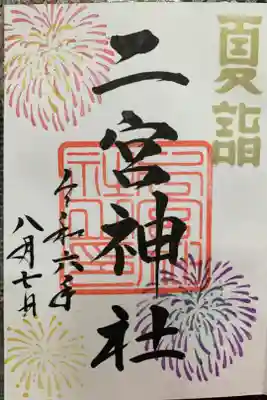 夏詣
二宮神社
令和六年
八月七日